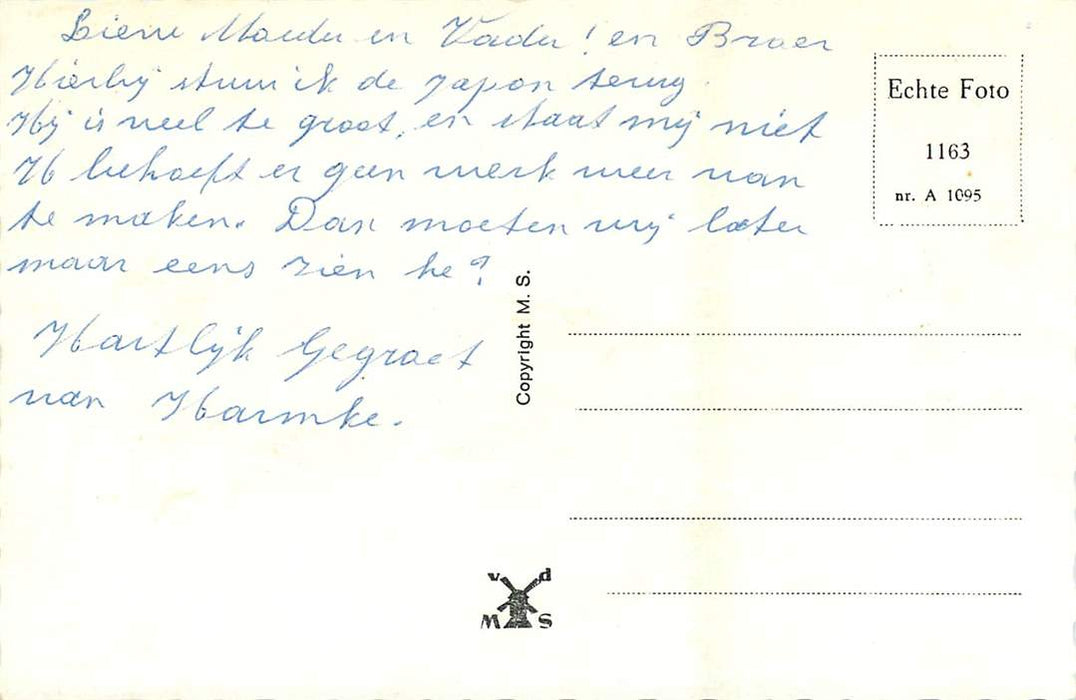 Lieve Moeder en Vader! en Broer
Hierbij stuur ik de japon terug.
Hij is veel te groot, en staat mij niet
U behoeft er geen werk meer van
te maken. Dan moeten wij later
maar eens zien he?
Hartlijk Gegroet
van Harmke.
Echte Foto
1163
nr. A 1095
Copyright M. S.
v d
M S